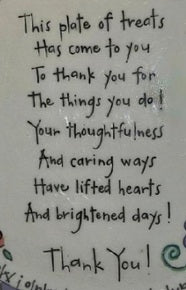 This plate of treats
Has come to you
To thank you for
The things you do!
Your thoughtfulness
And caring ways
Have lifted hearts
And brightened days!
Thank You!